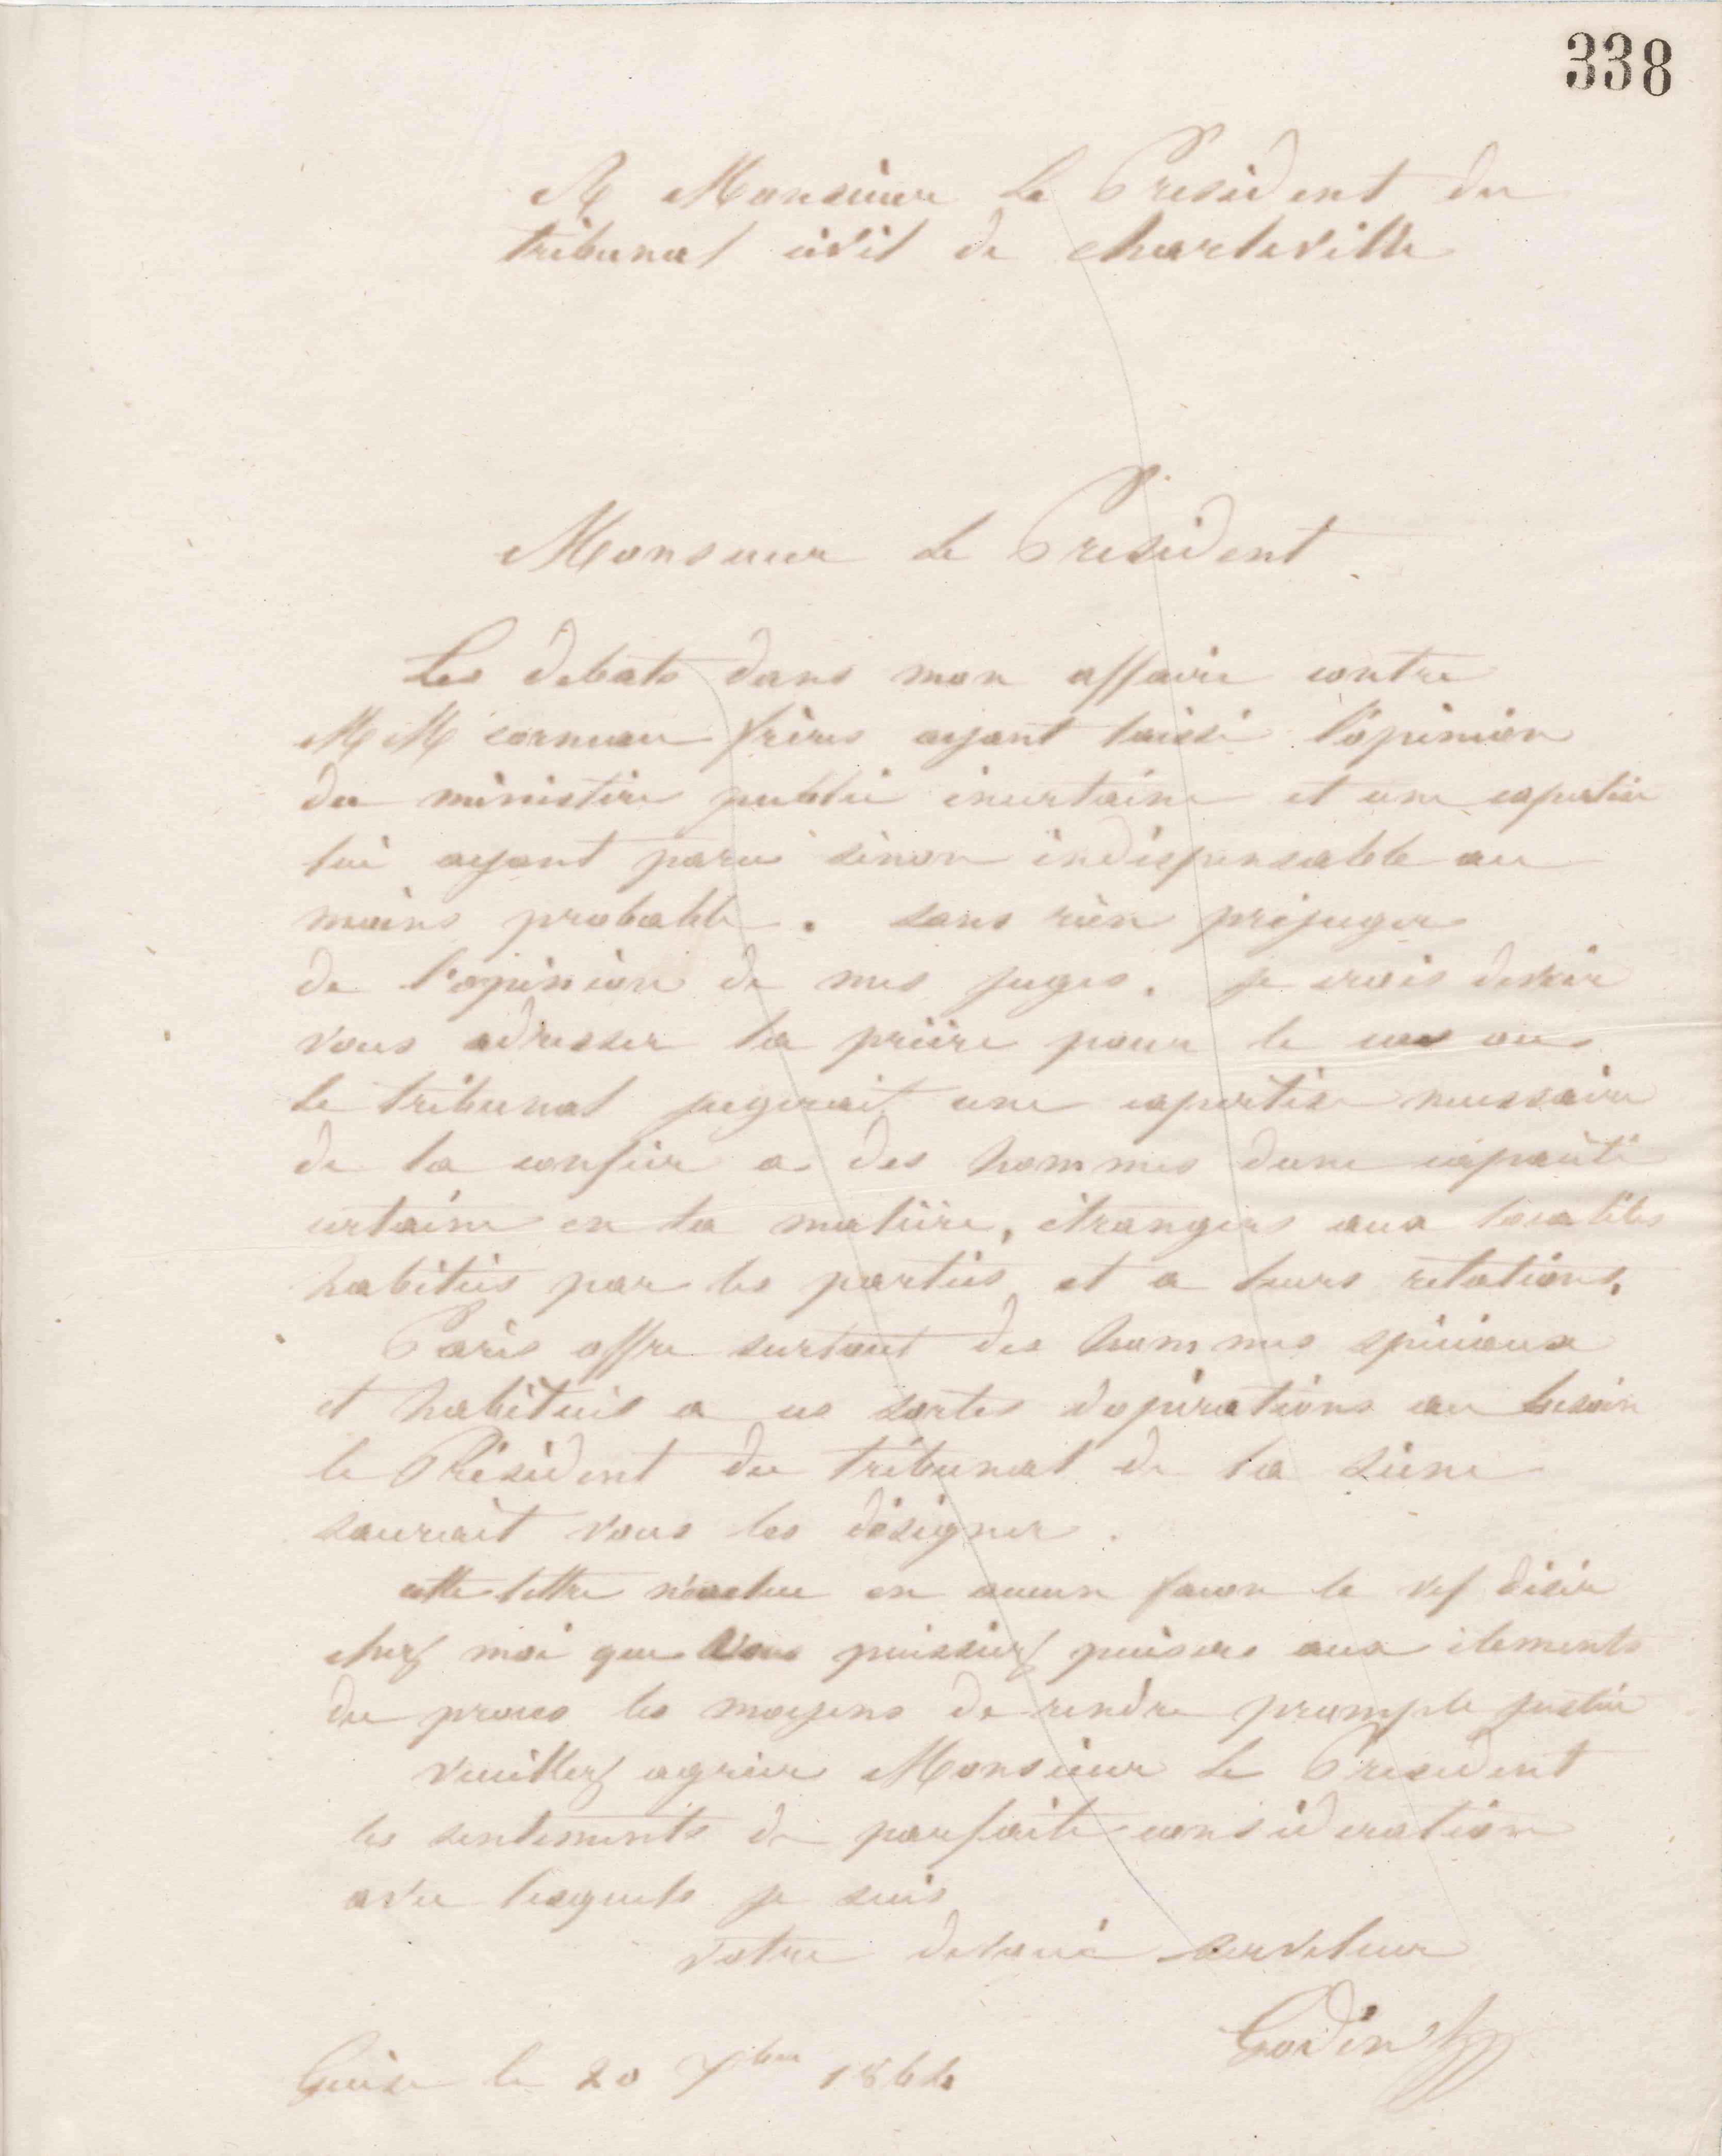 338
A Monsieur le President du
tribunal civil de charleville
Monsieur le President
Les debats dans mon affaire contre
MM corneau frères ayant laissé l'opinion
du ministère public incertaine et une expertise
lui ayant paru sinon indispensable au
moins probable. sans rien préjuger
de l'opinion de mes juges. je crois devoir
vous adresser la prière pour le cas ou
le tribunal jugerait une expertise necessaire
de la confier a des hommes dune capacité
certaine en la matière, étrangers aux localités
habitées par les parties et a leurs relations.
Paris offre surtout des hommes spéciaux
et habitués a ces sortes d'opérations au besoin
le Président du tribunal de la seine
saurait vous les désigner.
cette lettre n'exclue en aucun facon le vif désir
chez moi que vous puissiez puiser aux élements
du proces les moyens de rendre prompte justice
veuillez agréer Monsieur le President
les sentiments de parfaite consideration
avec lesquels je suis
votre devoué serviteur
Godin
Guise le 20 7bre 1864